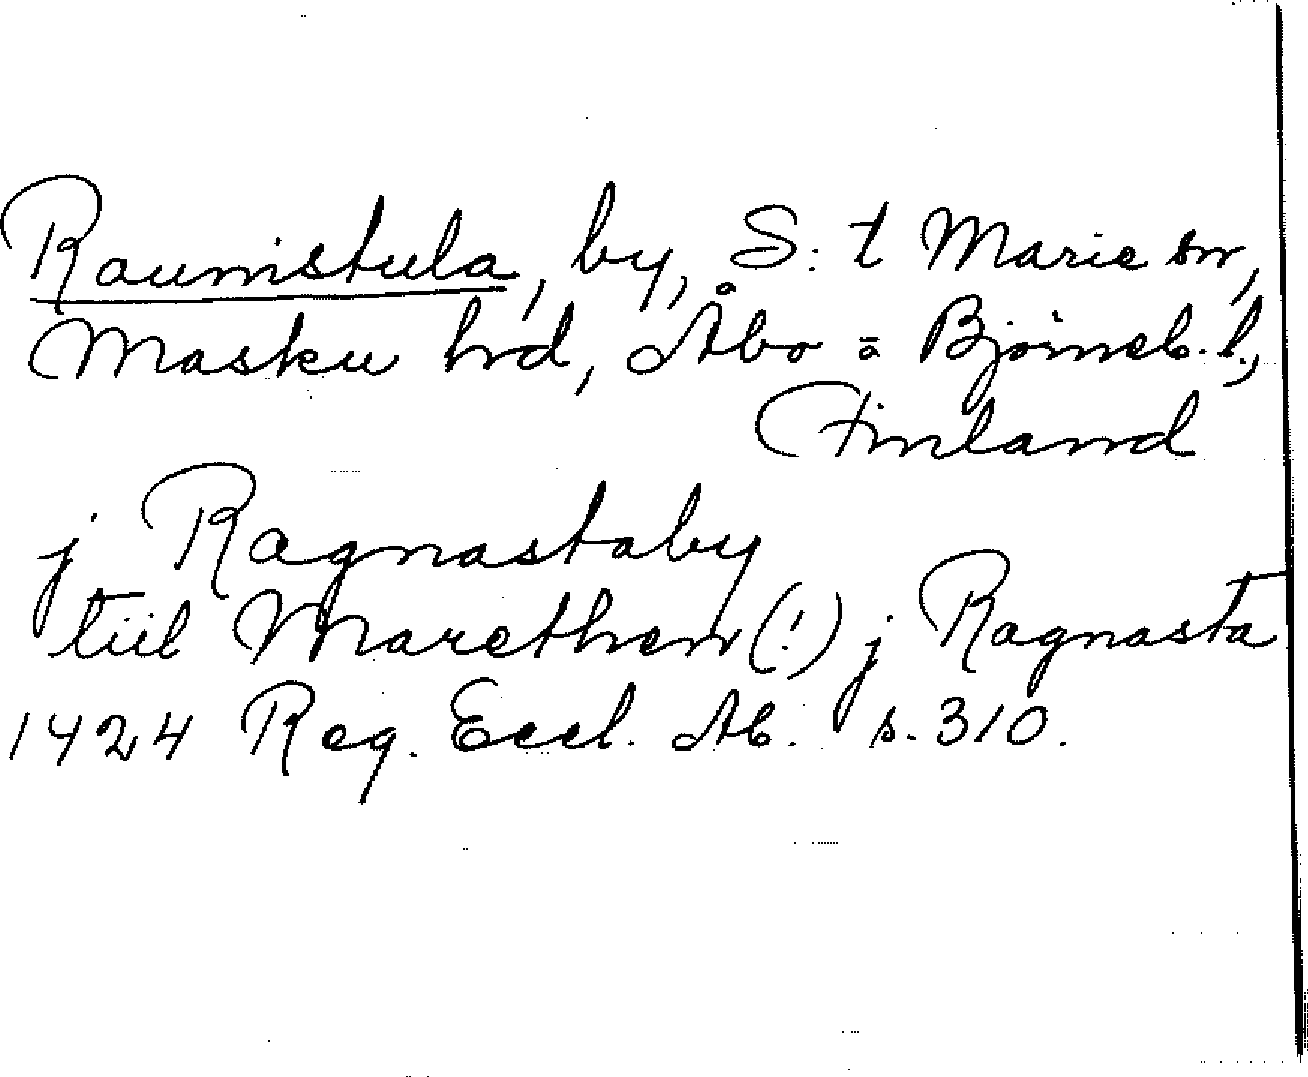 Raunistula, by, S:t Marie sn,
Masku hrd, Åbo o Björneb. l.,
Finland
j Ragnastaby
tiil Marethen (!) j Ragnasta
1424 Reg. Eccl. Ab. s. 310.